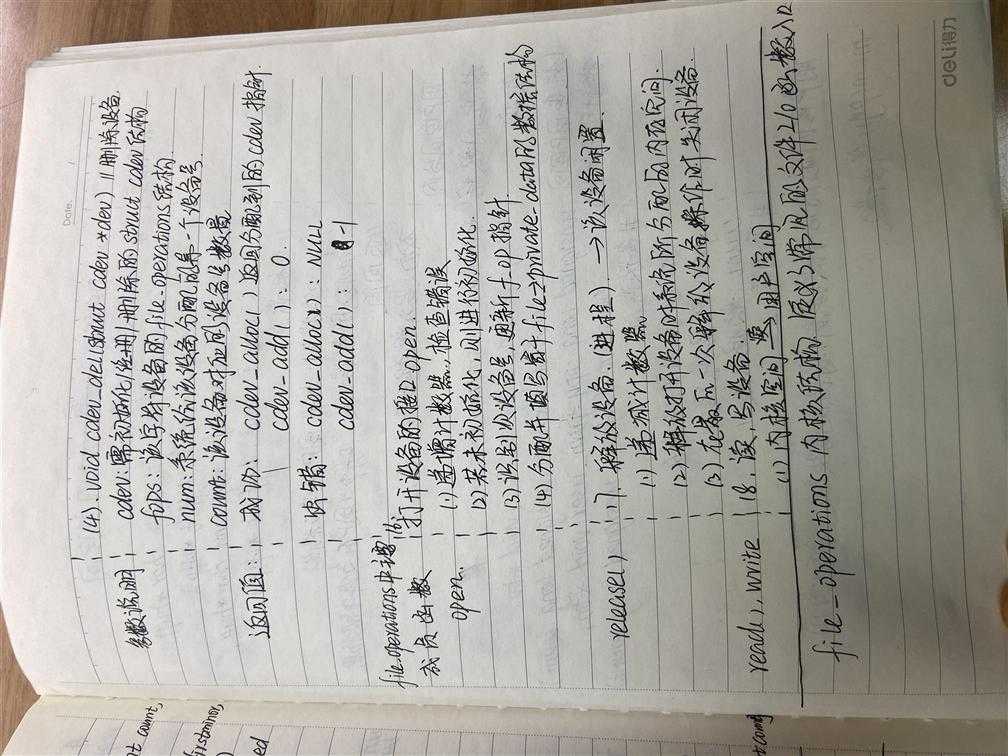 Date.
(4). void cdev_del(struct cdev *dev) // 删除设备.
参数说明 cdev: 需初始化/注册/删除的struct cdev结构
fops: 该字符设备的file_operations结构.
num: 系统给该设备分配的第一个设备号
count: 该设备对应的设备号数量
返回值: 成功: cdev_alloc() 返回分配到的cdev指针.
cdev_add(): 0.
出错: cdev_alloc(): NULL
cdev_add(): -1
file_operations中调 16.
成员函数 打开设备的接口open.
open. (1) 递增计数器, 检查错误
(2) 若未初始化, 则进行初始化.
(3) 识别次设备号, 更新f_op指针.
(4) 分配并填写置于file->private_data的数据结构
release() 17. 释放设备.(进程) → 该设备闲置.
(1) 递减计数器
(2) 释放打开设备时系统所分配的内存空间.
(3) 在最后一次释放设备操作时关闭设备.
read(), write 18. 读, 写设备.
(1) 内核空间 用户空间
file_operations 内核结构, 定义了常见的文件I/O函数入口
deli得力
nt count,
firstminor,
ed
t count